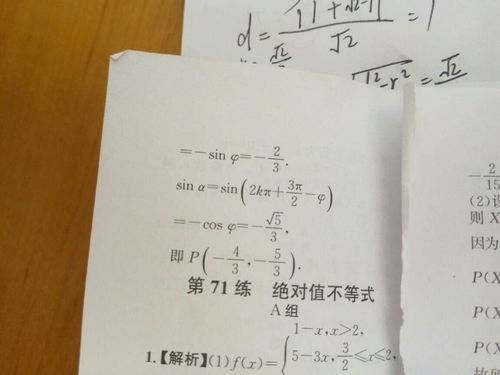 d=
√2
=1
√2
=√2
=-sin φ=-2/3.
sin α=sin(2kπ+3π/2-φ)
=-cos φ=-√5/3,
即 P(-4/3,-5/3).
第 71 练 绝对值不等式
A 组
1-x,x>2,
1.【解析】(1)f(x)={5-3x,3/2≤x≤2,
-2/15
(2)设
则 X
因为
P(X
P(X
P(X